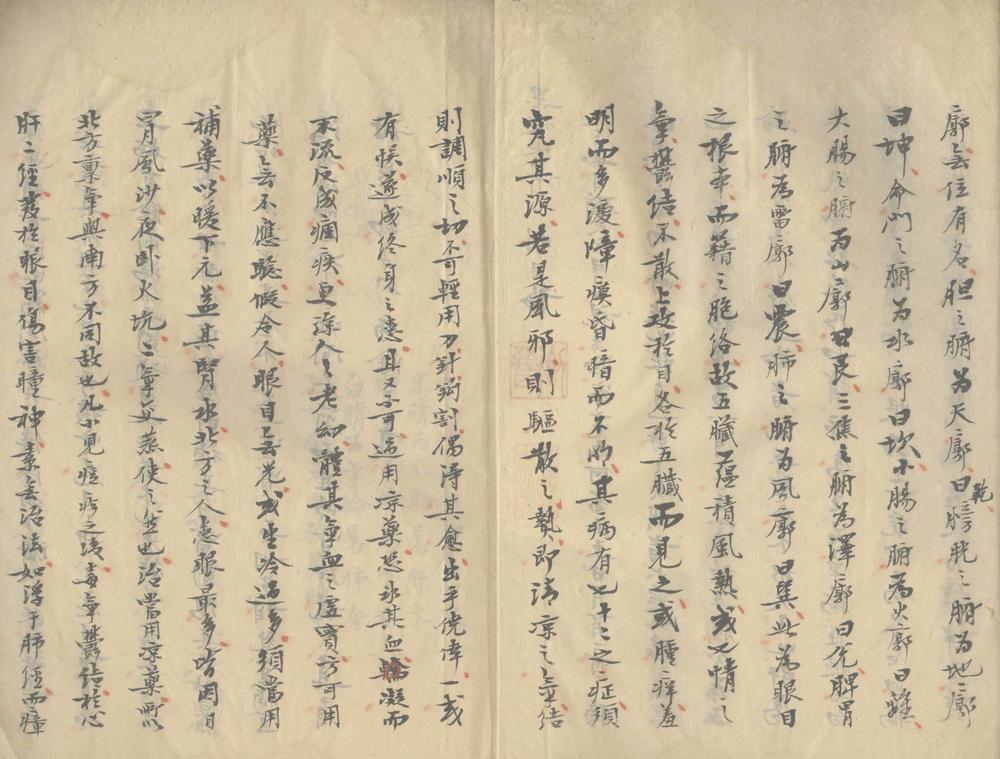 廓無位有名胆之腑为天廓曰乾膀胱之腑为地廓
曰坤命門之腑为水廓曰坎小腸之腑為火廓曰離
大腸之腑为山廓曰艮三焦之腑為澤廓曰兌脾胃
之腑為雷廓曰震肺之腑為風廓曰巽此為眼目
之根本而籍之胞络故五臟蘊積風熱或七情之
氣欝结不散上攻於目各於五臟而見之或腫痒羞
明而多淚障瘼昏暗而不明其病有七十二之症須
究其源若是風邪則驅散之熱即清凉之氣结
則調順之切不可輕用刀針鈎割偶淂其愈出乎侥倖一或
有悮遂成终身之患且又不可過用凉藥恐氷其血凝而
不流反成痼疾更詳人之老幼體其氣血之虛實方可用
藥無不應驗假令人眼目無光或生冷過多須當用
補藥以暖下元益其腎水北方之人患眼最多皆因日
冒風沙夜卧火坑二氣交蒸使之然也治當用凉藥所以
北方稟氣與南方不同故也凡小児痘疹之後毒氣欝结於心
肝二經發於眼目傷害瞳神素無治法如浮于肺經而瘴